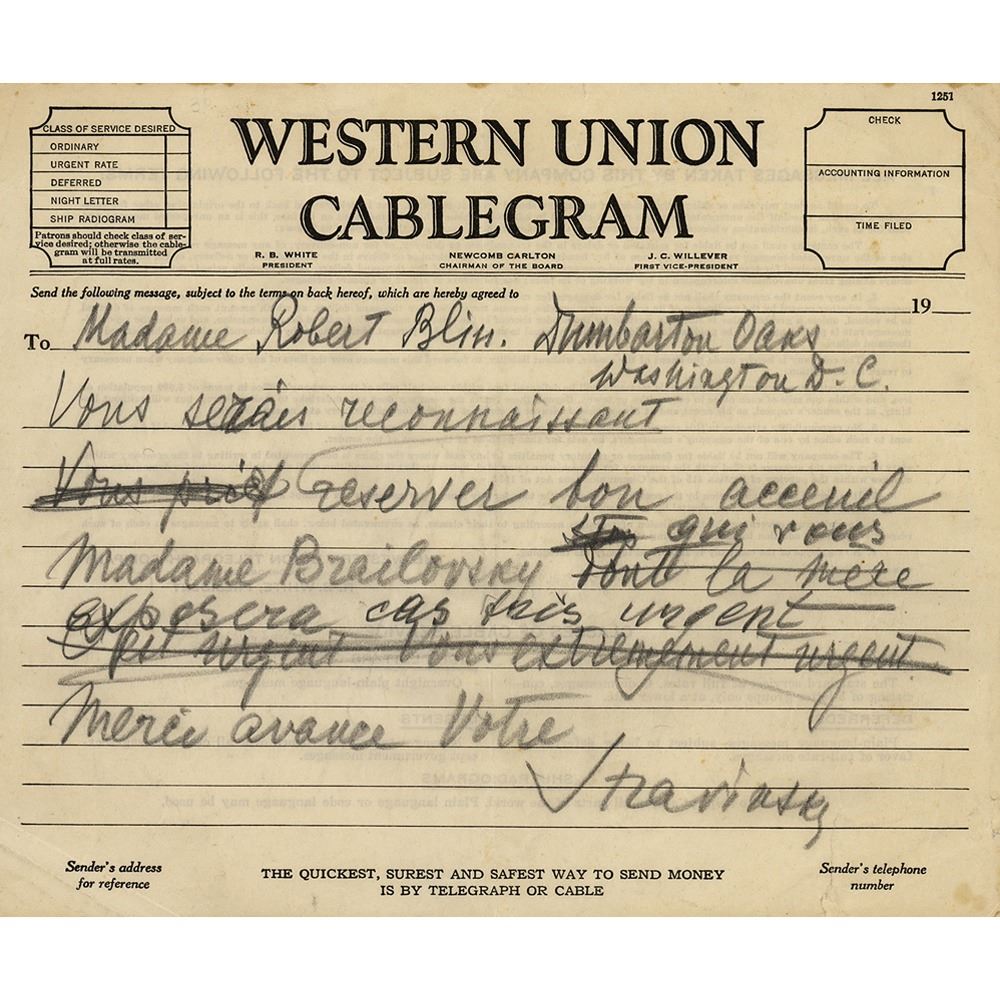 1251
CLASS OF SERVICE DESIRED
ORDINARY
URGENT RATE
DEFERRED
NIGHT LETTER
SHIP RADIOGRAM
Patrons should check class of ser-
vice desired; otherwise the cable-
gram will be transmitted
at full rates.
WESTERN UNION
CABLEGRAM
R. B. WHITE
PRESIDENT
NEWCOMB CARLTON
CHAIRMAN OF THE BOARD
J. C. WILLEVER
FIRST VICE-PRESIDENT
CHECK
ACCOUNTING INFORMATION
TIME FILED
Send the following message, subject to the terms on back hereof, which are hereby agreed to
19
To Madame Robert Blin. Dumbarton Oaks
Washington D. C.
Vous serais reconnaissant
Vous reserver bon acceuil
qui vous
Madame Brailovsky dont la mere
exposera cas tres urgent
Est urgent Vous extremement urgent
Merci avance Votre
Stravinsky
Sender's address
for reference
THE QUICKEST, SUREST AND SAFEST WAY TO SEND MONEY
IS BY TELEGRAPH OR CABLE
Sender's telephone
number